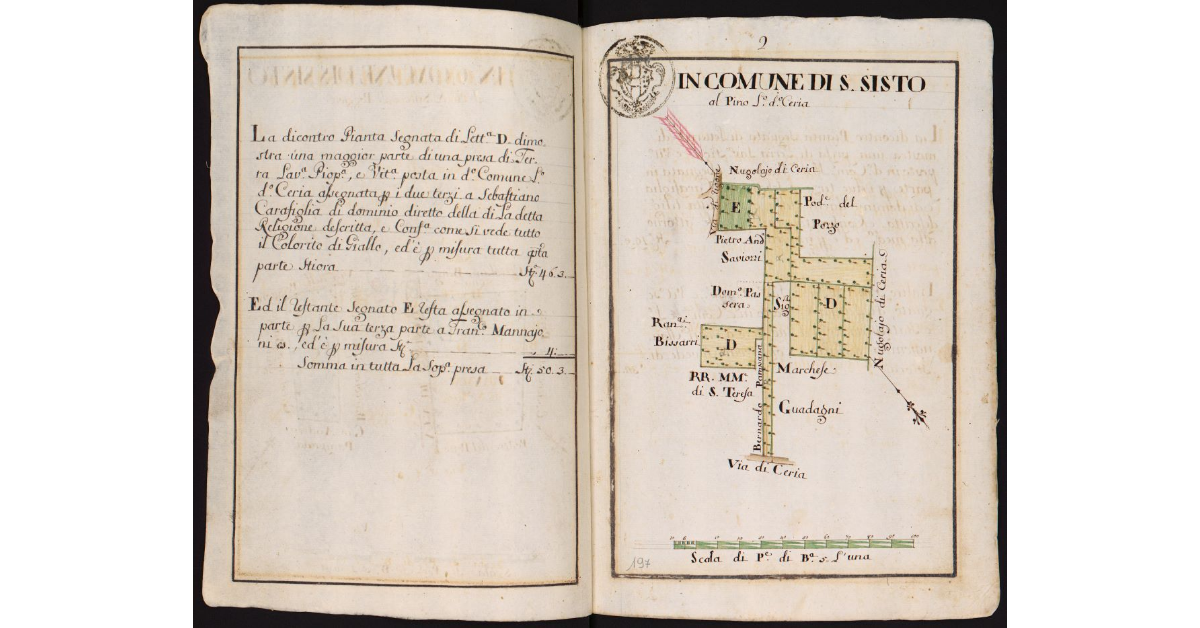 La dicontro Pianta Segnata di Lett.ª D. dimo-
stra una maggior parte di una presa di Ter-
ra Lav.ª Piop.ª, e Vit.ª posta in d.º Comune L.º
d.º Ceria assegnata p i due terzi a Sebastiano
Carafiglia di dominio diretto della di Sa detta
Religione descritta, e Conf.ª come si vede tutto
il Colorito di Giallo, ed'è p misura tutta qta
parte Stiora St. 46.3.
Ed il restante Segnato E resta assegnato in
parte p la Sua terza parte a Fran.º Mannajo-
ni ed'è p misura St. 4.
Somma in tutta La Sop.ª presa St. 50.3.
2
IN COMUNE DI S. SISTO
al Pino L.º d.º Ceria
Nugolajo di Ceria
E
Pod.º del
Pozzo
Pietro And
Saviozzi
Dom.º Pas
sera
Sig.
D
Nugolajo di Ceria
Ran.
Bissarri
D
RR. MM.
di S. Teresa
Bernardo Pampana
Marchese
Guadagni
Via di Ceria
Scala di P.e di B.ª 5 L'una
197